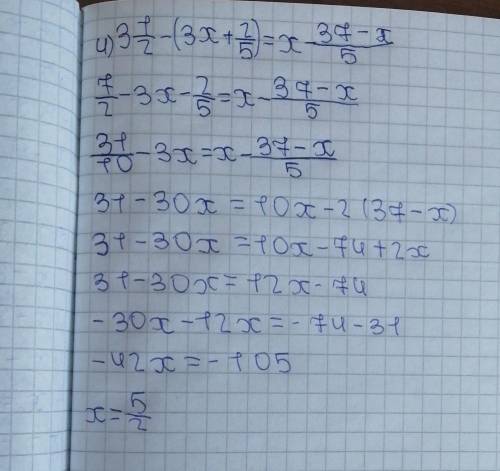 4) 3 1/2 - (3x + 2/5) = x - (37 - x)/5
7/2 - 3x - 2/5 = x - (37 - x)/5
31/10 - 3x = x - (37 - x)/5
31 - 30x = 10x - 2(37 - x)
31 - 30x = 10x - 74 + 2x
31 - 30x = 12x - 74
- 30x - 12x = - 74 - 31
- 42x = - 105
x = 5/2